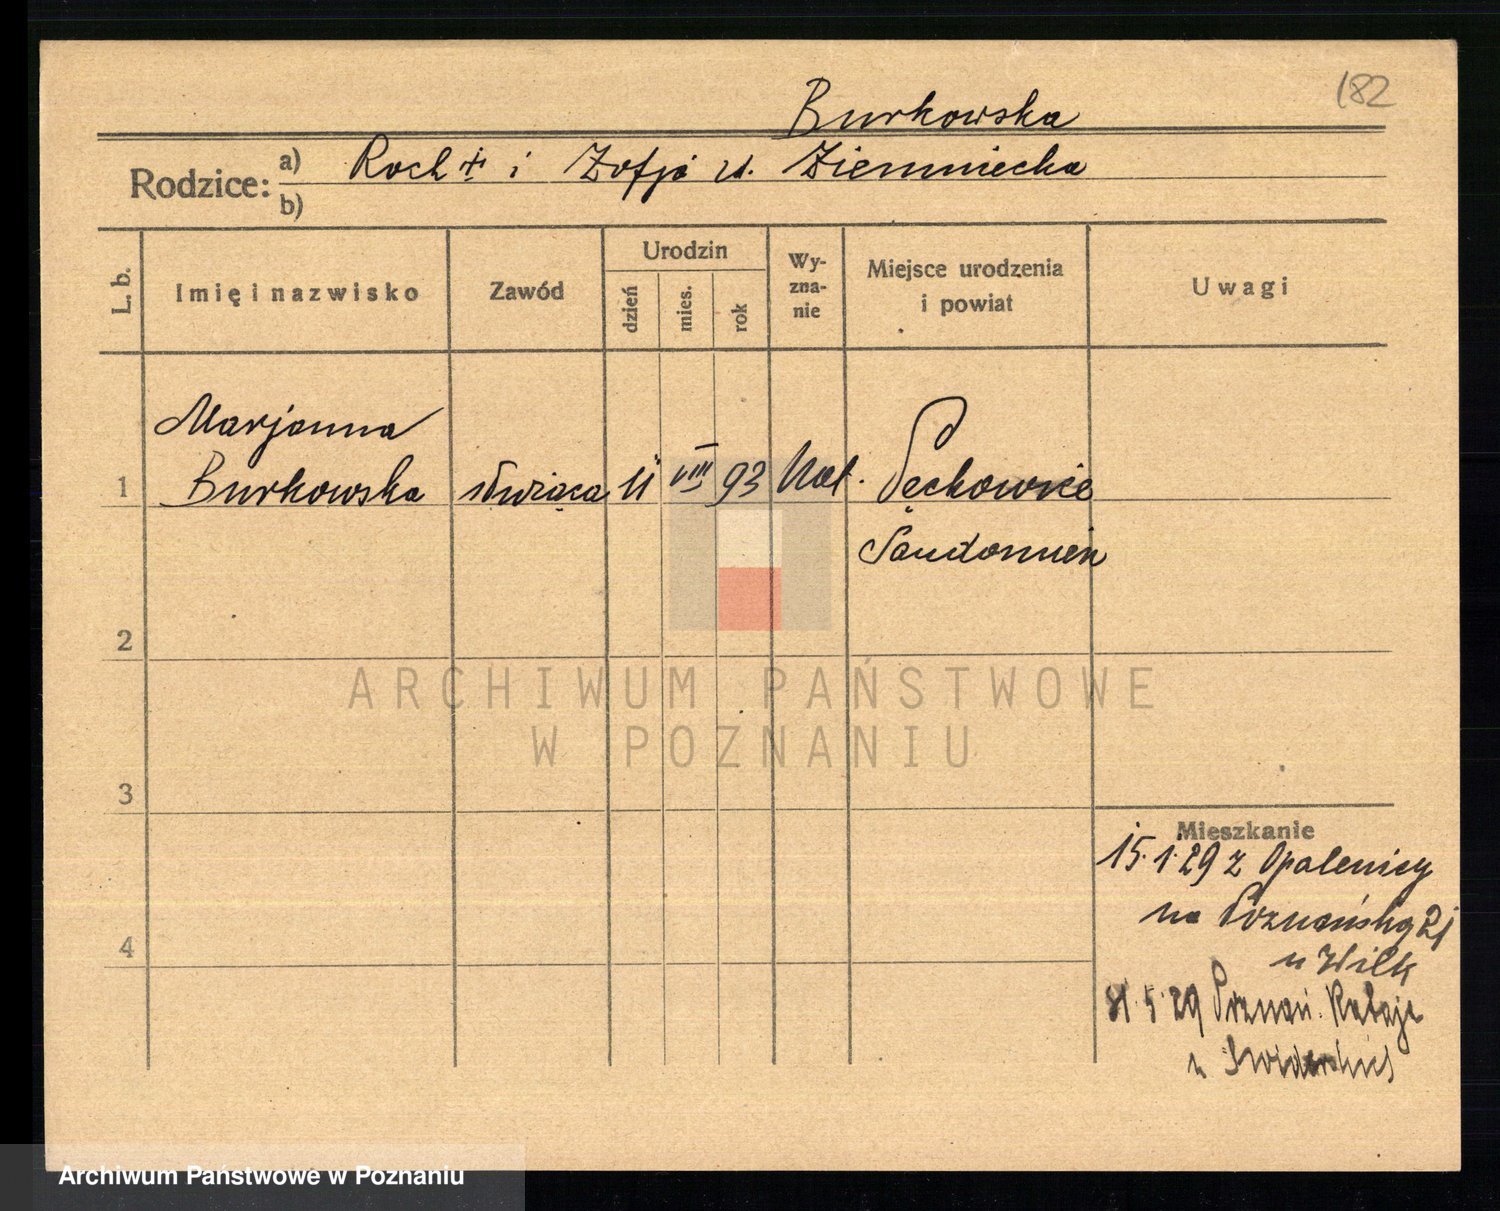 182
Burkowska
Rodzice: a) Roch + i Zofja u. Ziemniecka
b)
L. b. Imię i nazwisko Zawód Urodzin dzień mies. rok Wy-zna-nie Miejsce urodzenia i powiat Uwagi
Marjanna
1 Burkowska służąca 11 VIII 93 kat. Pęchowice
Sandomierz
2
ARCHIWUM PAŃSTWOWE
W POZNANIU
3
Mieszkanie
15.1.29 z Opalenicy
4 na Poznańską 21
u Wilk
31.5.29 Poznań. Rataje
u
Archiwum Państwowe w Poznaniu